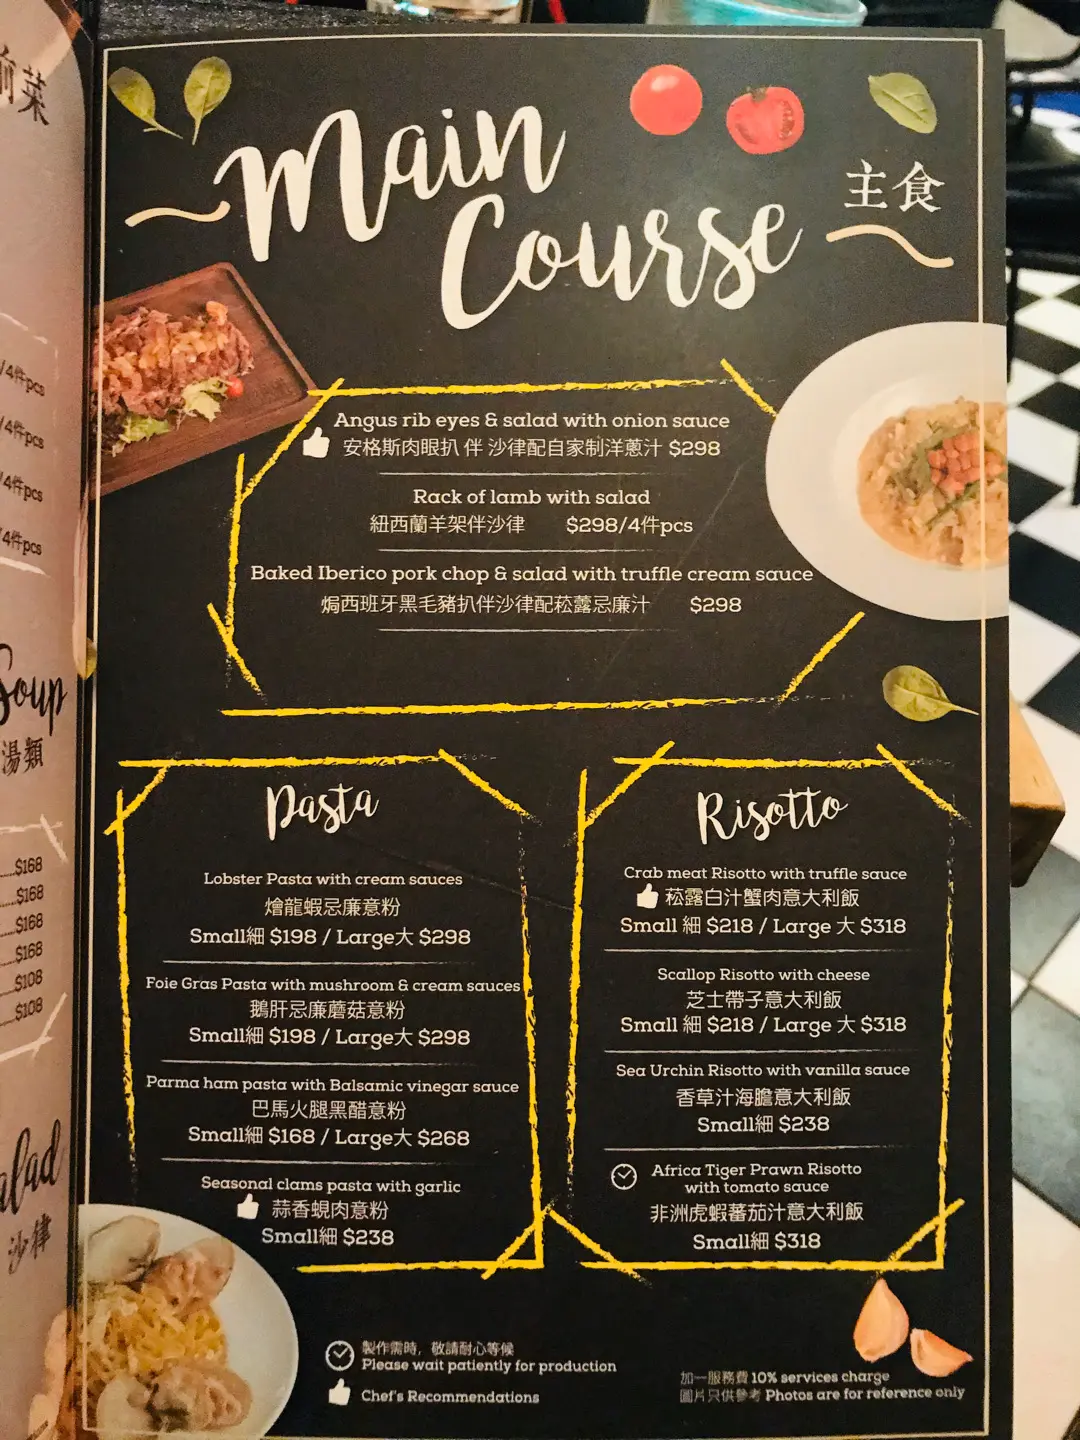 前菜
/4件pcs
/4件pcs
/4件pcs
/4件pcs
Soup
湯類
$168
$168
$168
$168
$108
$108
沙律
Main
Course
主食
Angus rib eyes & salad with onion sauce
安格斯肉眼扒 伴 沙律配自家制洋蔥汁 $298
Rack of lamb with salad
紐西蘭羊架伴沙律 $298/4件pcs
Baked Iberico pork chop & salad with truffle cream sauce
焗西班牙黑毛豬扒伴沙律配菘露忌廉汁 $298
Pasta
Lobster Pasta with cream sauces
燴龍蝦忌廉意粉
Small細 $198 / Large大 $298
Foie Gras Pasta with mushroom & cream sauces
鵝肝忌廉蘑菇意粉
Small細 $198 / Large大 $298
Parma ham pasta with Balsamic vinegar sauce
巴馬火腿黑醋意粉
Small細 $168 / Large大 $268
Seasonal clams pasta with garlic
蒜香蜆肉意粉
Small細 $238
Risotto
Crab meat Risotto with truffle sauce
菘露白汁蟹肉意大利飯
Small 細 $218 / Large 大 $318
Scallop Risotto with cheese
芝士帶子意大利飯
Small 細 $218 / Large 大 $318
Sea Urchin Risotto with vanilla sauce
香草汁海膽意大利飯
Small細 $238
Africa Tiger Prawn Risotto
with tomato sauce
非洲虎蝦蕃茄汁意大利飯
Small細 $318
製作需時，敬請耐心等候
Please wait patiently for production
Chef's Recommendations
加一服務費 10% services charge
圖片只供參考 Photos are for reference only